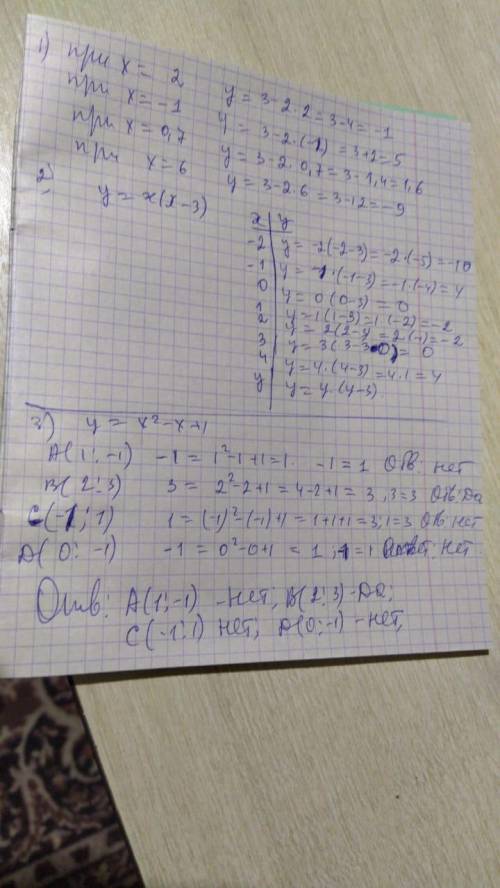 1) при x = 2 y = 3-2·2 = 3-4 = -1
при x = -1 y = 3-2·(-1) = 3+2 = 5
при x = 0,7 y = 3-2·0,7 = 3-1,4 = 1,6
при x = 6 y = 3-2·6 = 3-12 = -9
2) y = x(x-3)
x | y
-2 | y = -2(-2-3) = -2·(-5) = -10
-1 | y = -1·(-1-3) = -1·(-4) = 4
0 | y = 0(0-3) = 0
1 | y = 1(1-3) = 1·(-2) = -2
2 | y = 2(2-3) = 2·(-1) = -2
3 | y = 3(3-3·0) = 0
4 | y = 4·(4-3) = 4·1 = 4
y | y = y·(y-3)
3) y = x²-x+1
A(1;-1) -1 = 1²-1+1 = 1. -1 = 1 Отв: нет
B(2;3) 3 = 2²-2+1 = 4-2+1 = 3, 3=3 Отв: Да
C(-1;1) 1 = (-1)²-(-1)+1 = 1+1+1 = 3; 1=3 Отв: нет
D(0;-1) -1 = 0²-0+1 = 1; -1=1 Ответ: нет
Отв: A(1;-1) -нет; B(2;3)-Да;
C(-1;1) нет; D(0;-1) -нет;